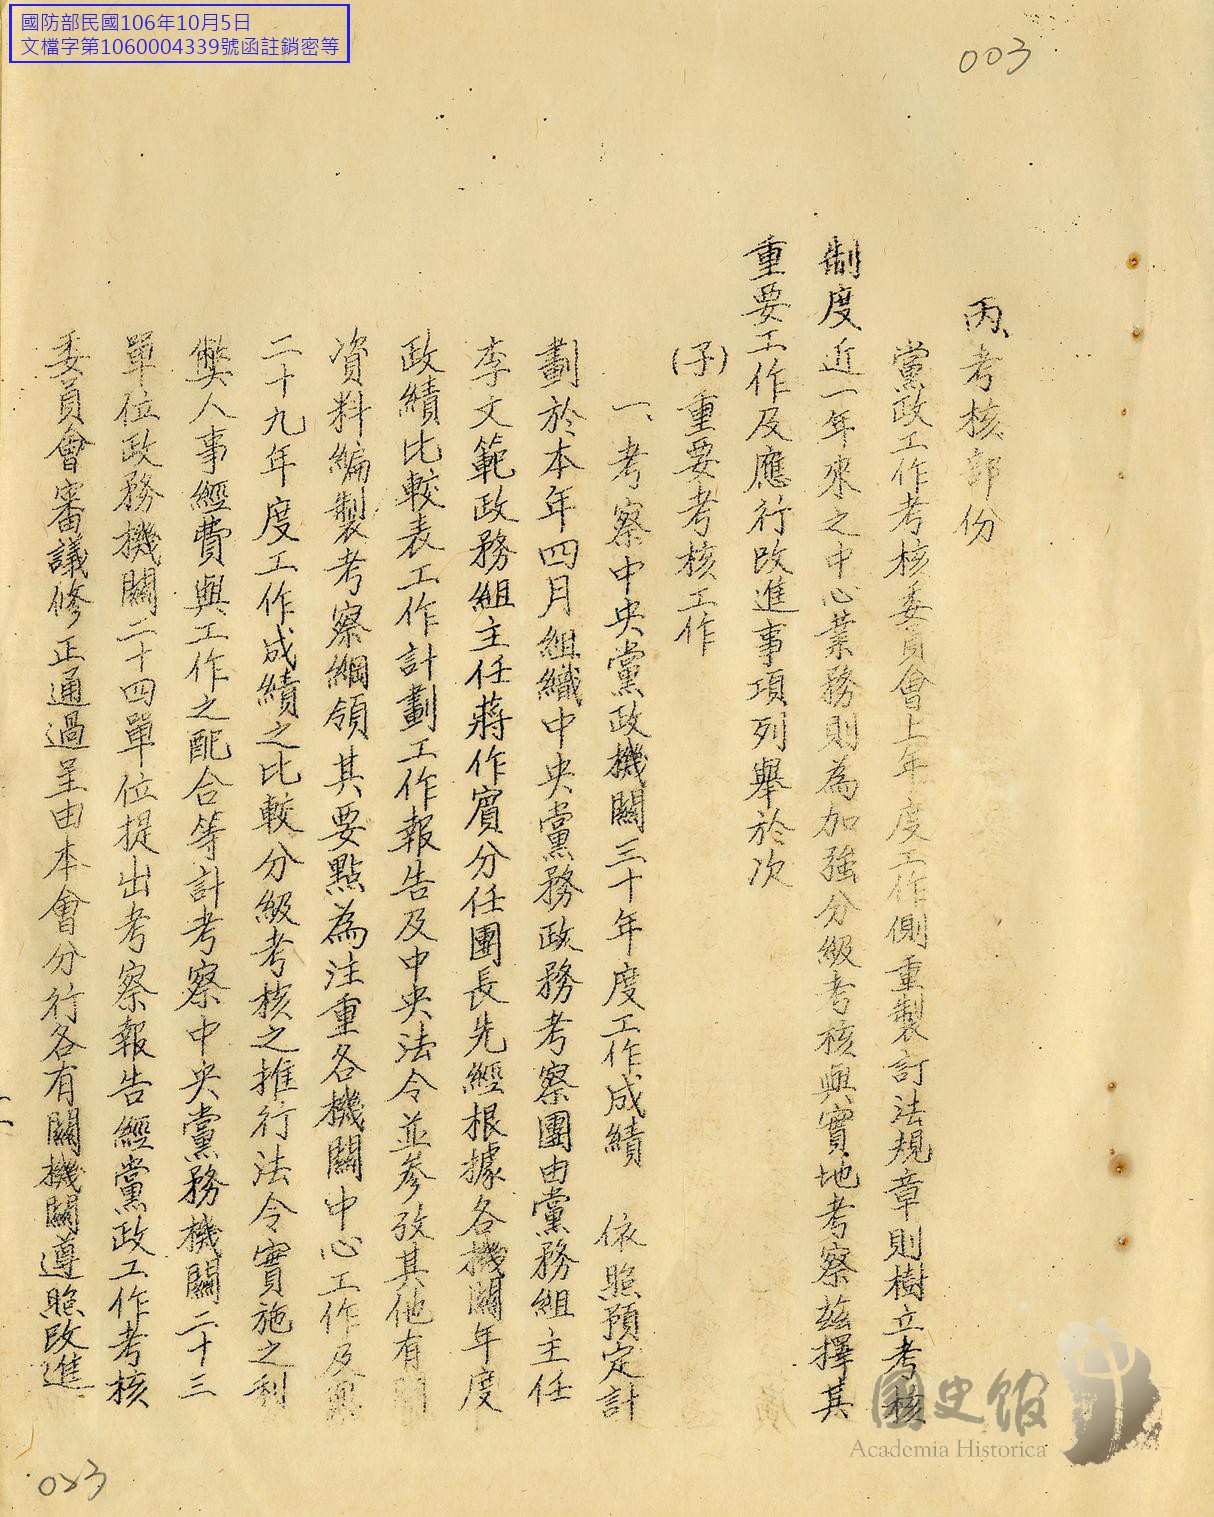 國防部民國106年10月5日
文檔字第1060004339號函註銷密等
003
丙、考核部份
黨政工作考核委員會上年度工作側重製訂法規章則樹立考核
制度近一年來之中心業務則為加強分級考核與實地考察茲擇其
重要工作及應行改進事項列舉於次
(子)重要考核工作
一、考察中央黨政機關三十年度工作成績 依照預定計
劃於本年四月組織中央黨務政務考察團由黨務組主任
李文範政務組主任蔣作賓分任團長先經根據各機關年度
政績比較表工作計劃工作報告及中央法令並參攷其他有關
資料編製考察綱領其要點為注重各機關中心工作及與
二十九年度工作成績之比較分級考核之推行法令實施之利
弊人事經費與工作之配合等計考察中央黨務機關二十三
單位政務機關二十四單位提出考察報告經黨政工作考核
委員會審議修正通過呈由本會分行各有關機關遵照改進
003
國史館
Academia Historica